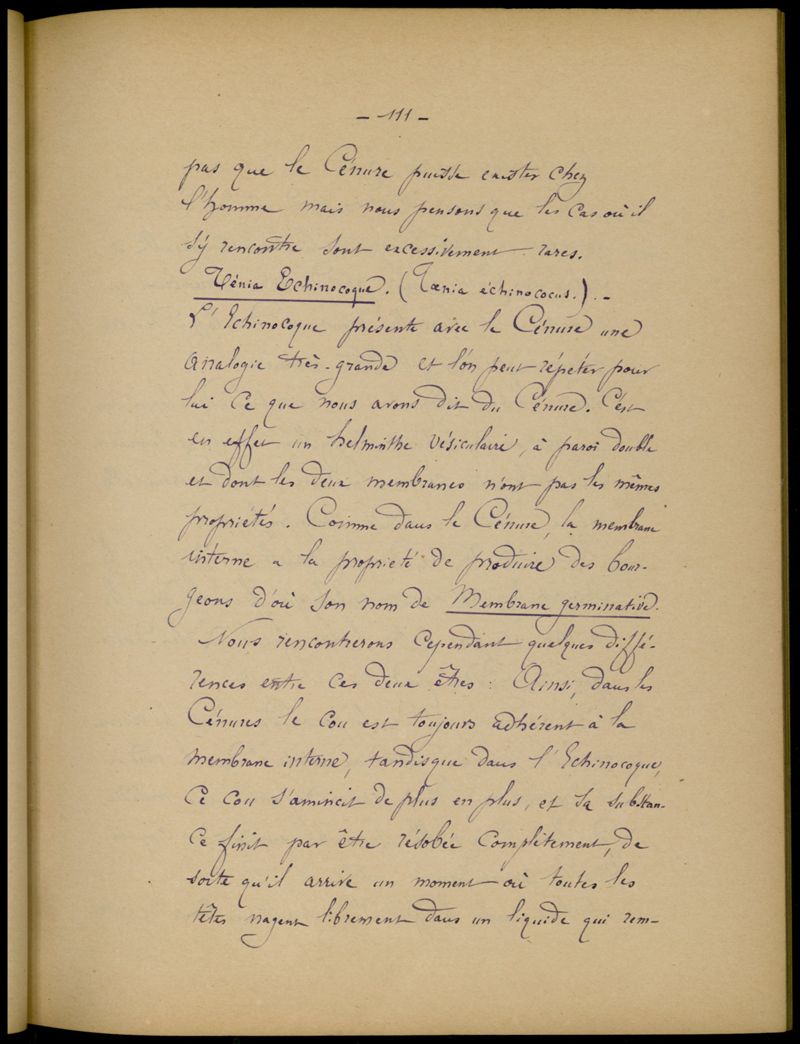 - 111 -
pas que le Cénure puisse exister chez
l'homme mais nous pensons que les cas où il
s'y rencontre sont excessivement rares.
Ténia Echinocoque. (Tænia échinococus.). -
L'Echinocoque présente avec le Cénure une
analogie très-grande et l'on peut répéter pour
lui ce que nous avons dit du Cénure. C'est
en effet un helminthe vésiculaire, à paroi double
et dont les deux membranes n'ont pas les mêmes
propriétés. Comme dans le Cénure, la membrane
interne a la propriété de produire des bour-
geons d'où son nom de Membrane germinative.
Nous rencontrerons cependant quelques diffé-
rences entre ces deux êtres : Ainsi, dans les
Cénures le cou est toujours adhérent à la
membrane interne, tandisque dans l'Echinocoque,
ce cou s'amincit de plus en plus, et sa substan-
ce finit par être résobée complètement, de
sorte qu'il arrive un moment où toutes les
têtes nagent librement dans un liquide qui rem-